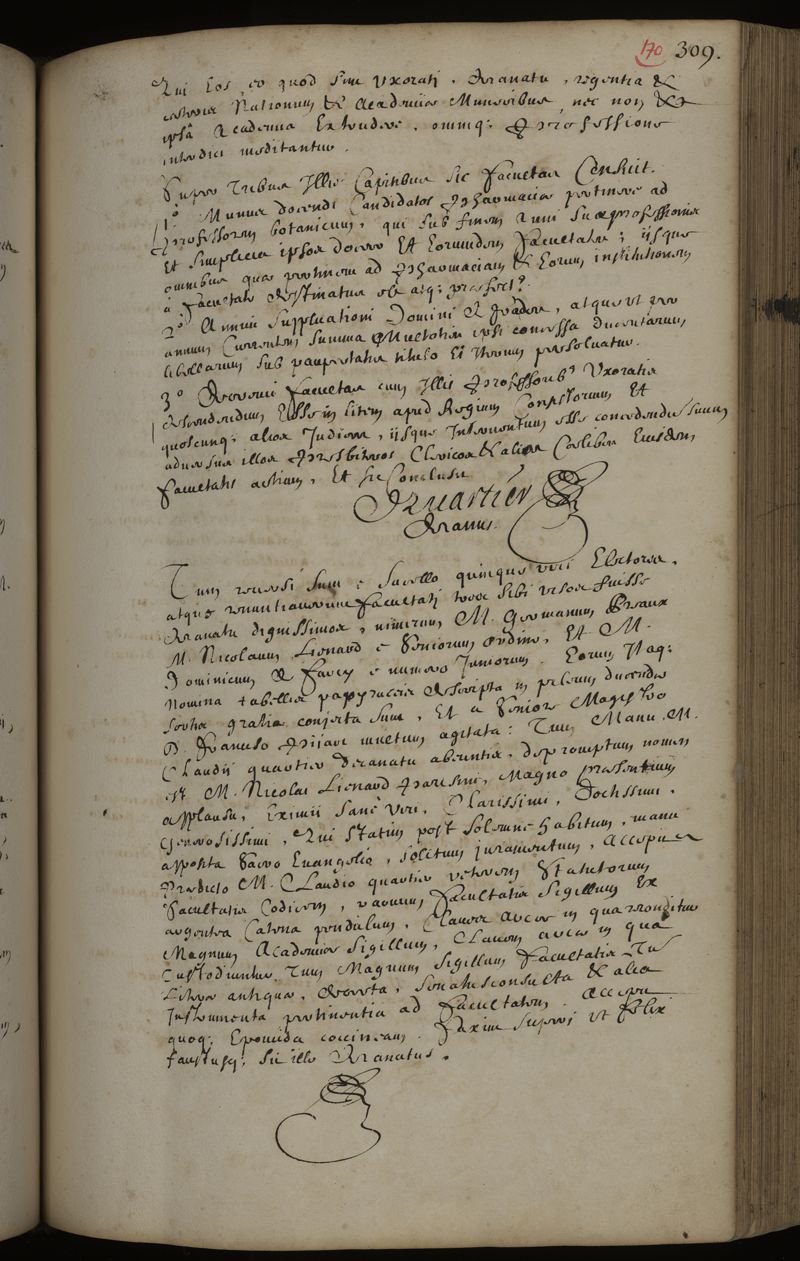 170 309.
Qui eos eo quod sint Uxorati, Decanatu, regentia &
caeteris Nationum & Academiae Muneribus, nec non &
ipsâ Academia Extrudere, omniq; Professione
interdici meditantur.
Super Tribus Illis Capitibus sic Facultas Censuit.
1° Munus docendi Candidatos Pharmaciae pertinere ad
Professorem botanicum, qui sub finem Anni suae professionis
Et simplicia ipsos docere Et Eorumdem Facultates; iisque
omnibus quae pertinent ad Pharmaciam & Eorum institutionem
à Facultate destinatus
2° Annui Supplicationi Domini atque ut pro
annum Currentem summa ipsi concessa ducentarum
libellarum sub paupertatis titulo Et Verum persolvatur.
3° Decrevit Facultas cum Illis Professorib9 Uxoratis
descendendum Esse in litem apud Regium Et
quoscunq; alios Judices, iisque Interventum esse concedendum
adversus illos Presbiteros Clericos & alios Coelibes Eiusdem
Facultatis actum, Et sic Conclusit
Quartier
Decanus.
Tum reversi sunt è Sacello quinque viri Electores,
atque renuntiaverunt Facultati tres sibi visos fuisse
Decanatu dignissimos, nimirum M. Germanum Preaux
M. Nicolaum Lienard è Seniorum ordine, Et M.
Dominicum De Farcy è numero Juniorum. Eorum Itaq;
Nomina tabellis papyraceis descripta in pileum ducendae
sortis gratia conjecta sunt, Et a Seniore Magistro
D. Puilon multum agitata: Tum Manu M.
Claudij quartier decanatu abeuntis, depromptum nomen
est M. Nicolai Lienard Parisini, Magno praesentium
applausu, Eximii sanè viri, Clarissimi, Doctissimi,
Generosissimi, Qui statim post solemne habitum, manu
apposita Sacro Euangelio, solitum juramentum, Accepit a
Praedicto M. Claudio quartier veterem Statutorum
Facultatis Codicem, parvum Facultatis Sigillum Ex
argentea Catena pendulum, Claves arcae in qua reconditur
Magnum Academiae Sigillum, Clavem arcae in qua
Custodiuntur Tum Magnum Sigillum Facultatis Tum
Literae antiquae, Decreta, Senatusconsulta & alia
Instrumenta pertinentia ad Facultatem. Accepit
quoq; Epomida coccineam. Faxint Superi ut Felix
faustusq; sit ille Decanatus.